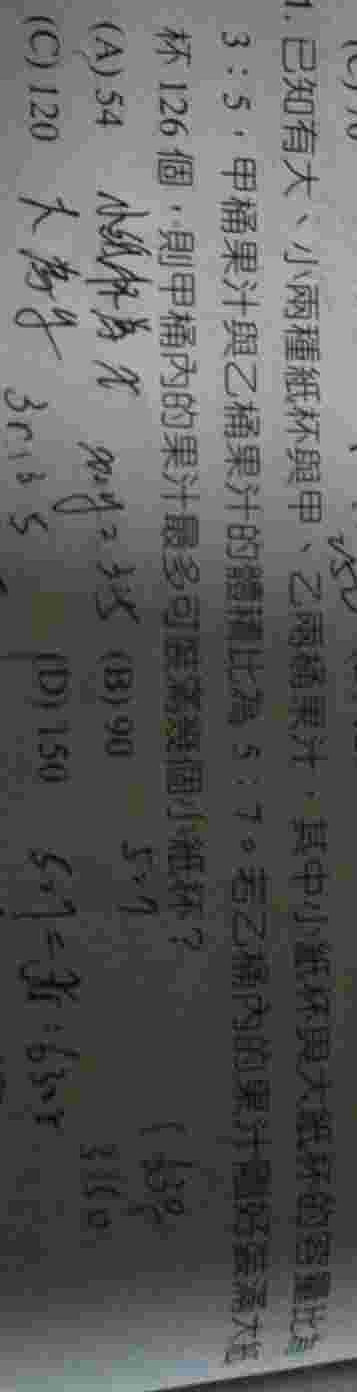 1. 已知有大、小兩種紙杯與甲、乙兩桶果汁，其中小紙杯與大紙杯的容量比為
3：5，甲桶果汁與乙桶果汁的體積比為 5：7。若乙桶內的果汁恰好裝滿大紙
杯 126 個，則甲桶內的果汁最多可裝滿幾個小紙杯？
(A) 54 小紙杯為x x:y=3:5 (B) 90 5:7
(C) 120 大為y 3r: 5 (D) 150 5:7=
630